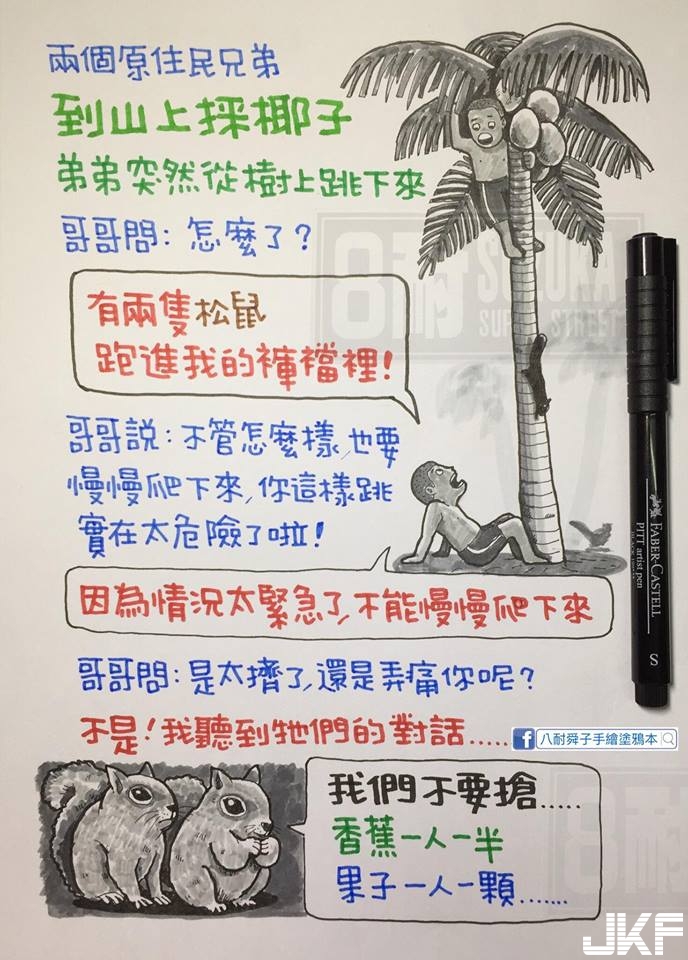 兩個原住民兄弟
到山上採椰子
弟弟突然從樹上跳下來
哥哥問：怎麼了？
有兩隻松鼠
跑進我的褲襠裡！
哥哥說：不管怎麼樣，也要
慢慢爬下來，你這樣跳
實在太危險了啦！
因為情況太緊急了，不能慢慢爬下來
哥哥問：是太擠了，還是弄痛你呢？
不是！我聽到牠們的對話.....
八耐舜子手繪塗鴉本
我們不要搶.....
香蕉一人一半
果子一人一顆.......
FABER-CASTELL
PITT artist pen
S
8耐
JKF